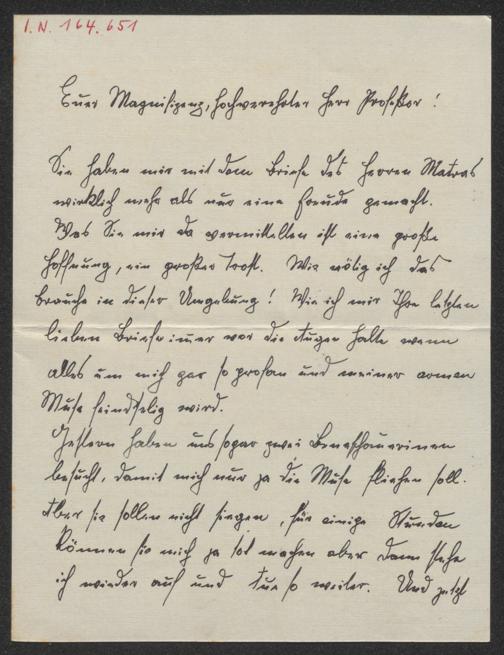 I.N. 164.651
Euer Magnifizenz, hochverehrter Herr Professor!
Sie haben mir mit dem Briefe des Herren Matras
wirklich mehr als nur eine Freude gemacht.
Was Sie mir da vermittelten ist eine große
Hoffnung, ein großer Trost. Wie nötig ich das
brauche in dieser Umgebung! Wie ich mir Ihre letzten
lieben Briefe immer vor die Augen halte wenn
alles um mich gar so profan und meiner armen
Muse feindselig wird.
Gestern haben uns sogar zwei
besucht, damit mich nur ja die Muse fliehen soll.
Aber sie sollen nicht siegen, für einige Stunden
können sie mich ja tot machen aber dann stehe
ich wieder auf und tue so weiter. Und jetzt